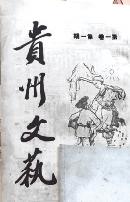 期一第 卷一第
貴州文藝